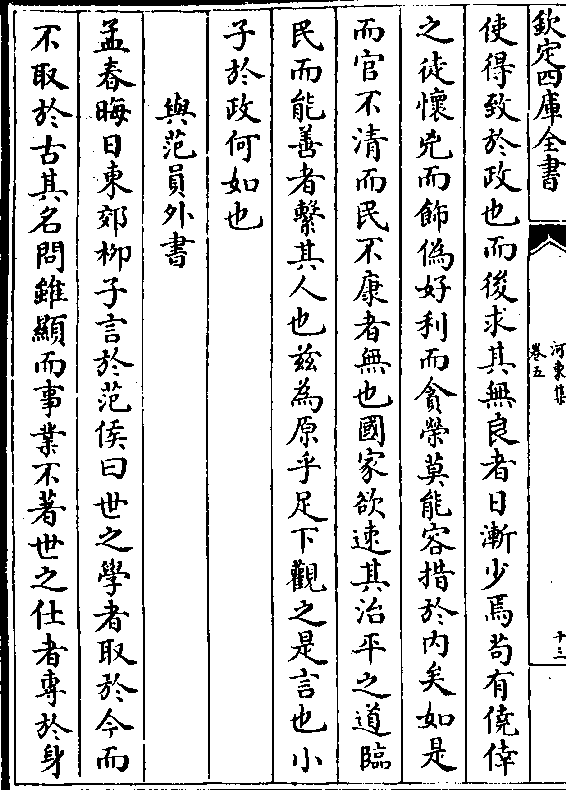 欽定四庫全書
河東集
卷五
十三
使得致於政也而後求其無良者日漸少焉茍有僥倖
之徒懷兇而飾僞好利而貪榮莫能容措於内矣如是
而官不清而民不康者無也國家欲速其治平之道臨
民而能善者繫其人也兹為原乎足下觀之是言也小
子於政何如也
與范員外書
孟春晦日東郊柳子言於范侯曰世之學者取於今而
不取於古其名問雖顯而事業不著世之仕者專於身